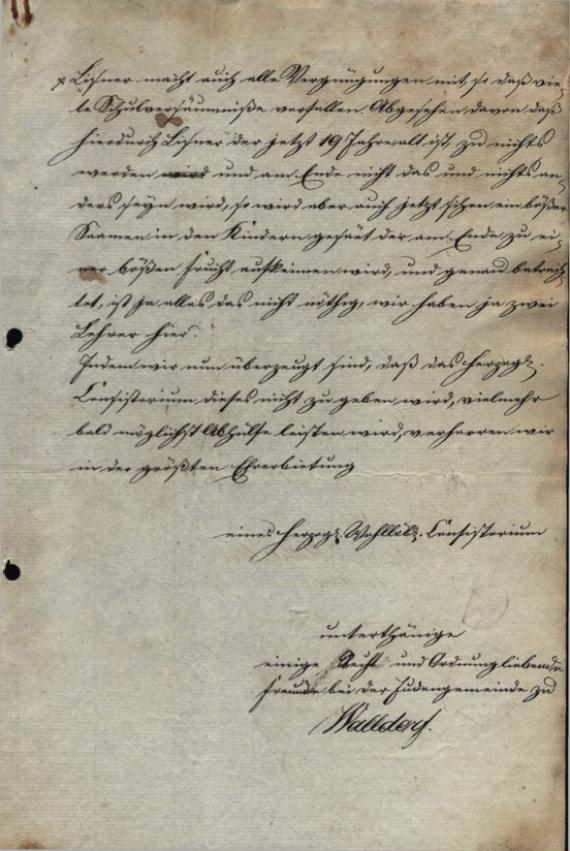 Lißner macht auch alle Vergnügungen mit, so daß vie-
le Schulversäumniße vorfallen. Abgesehen davon daß
hierdurch Lißner der jetzt 19 Jahre alt ist, zu nichts
werden wird und am Ende nicht das und nichts an-
ders seyn wird, so wird aber auch jetzt schon ein bößer
Saamen in den Kindern gesäet der am Ende zu ei-
ner bößen Frucht aufkeimen wird, und genau betrach-
tet, ist ja alles das nicht nöthig, wir haben ja zwei
Lehrer hier.
Indem wir nun überzeugt sind, daß das Herzogl.
Consistorium dieses nicht zu geben wird, vielmehr
bald möglichst Abhülfe leisten wird, verharren wir
in der größten Ehrerbietung
eines Herzogl. Wohllöbl. Consistorium
unterthänige
einige Recht und Ordnung liebende
Freunde bei der Judengemeinde zu
Walldorf.